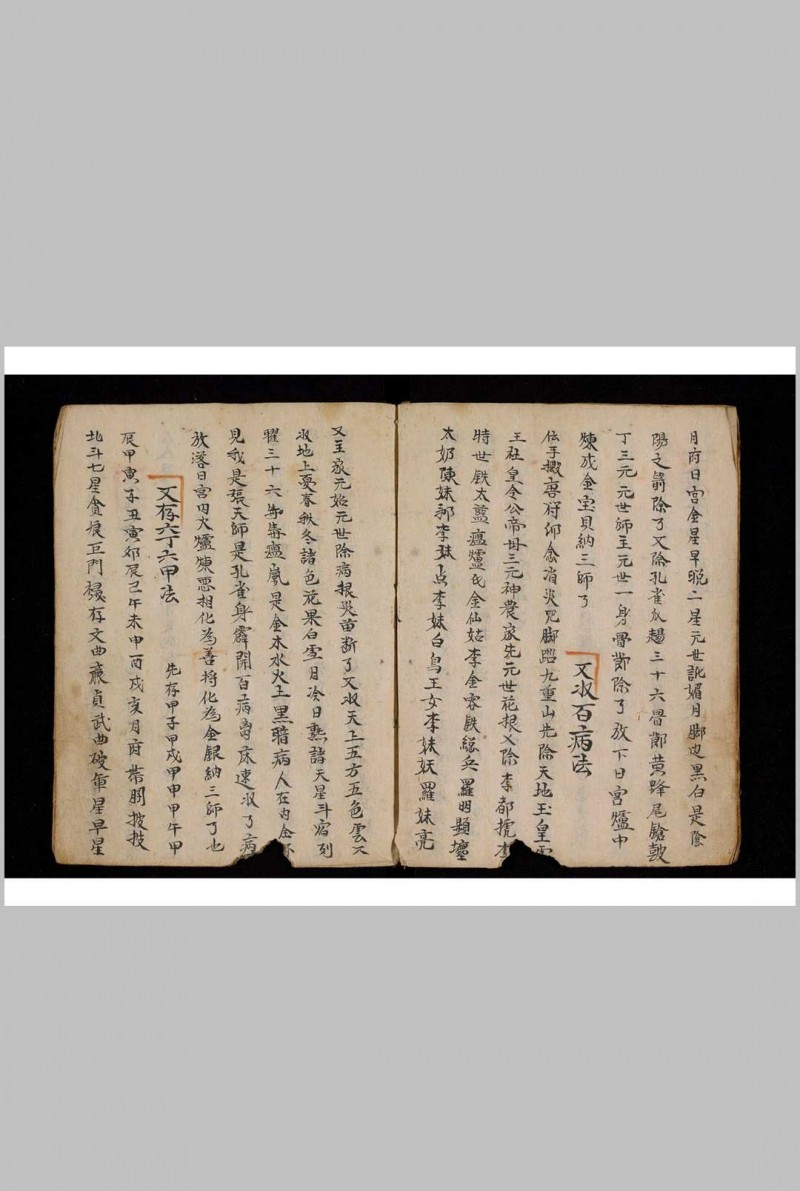 月府日宫金星早晚二星元世訛媚月脚边黑白是陰
陽之箭除了又除孔雀放趟三十六骨節黄蜂尾鎗皷
丁三元元世師主元世一身骨節除了放下日宫爐中
煉成金宝貝納三師了
又收百病法
伝手撒唐将仰念消災咒脚踏九重山先除天地玉皇
王社皇令公帝母三元神農家先元世花根又除李都
時世鉄太藍瘟爐氏金仙姑李金容鉄総兵羅明顕壇
太奶陳妹郭李妹占李妹白鳥王女李妹妖羅妹亮
又主家元始元世除病根災苗断了又收天上五方五色雲又
收地上夏春秋冬諸色花果白雪月冷日熱諸天星斗宿列
曜三十六毒瘟氣是金木水火土黑暗病人在内金
見我是張天師是孔雀身霹開百病身床速收了病
放落日宫田火爐煉悪相化為善将化為金銀納三師了也
又存六丁六甲法
先存甲子甲戌甲申甲午甲
辰甲寅子丑寅卯辰巳午未申酉戌亥月府帯閉披技
北斗七星貪狼巨門禄存文曲廉貞武曲破軍星早星